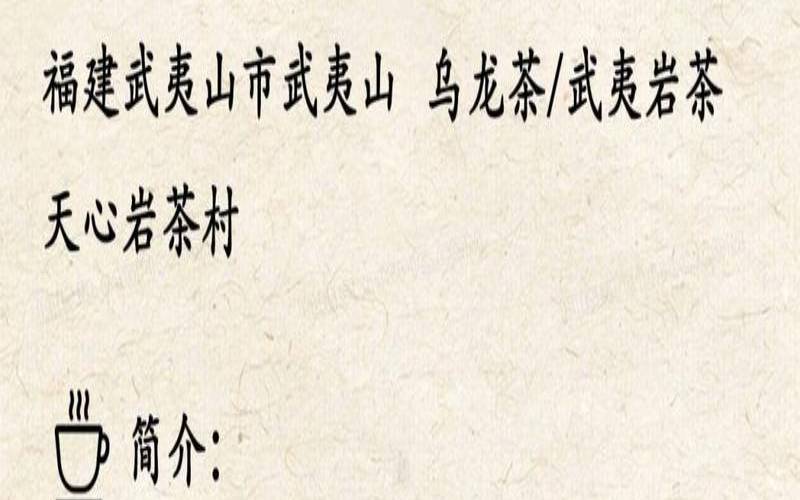 福建武夷山市武夷山 乌龙茶/武夷岩茶
天心岩茶村
简介: